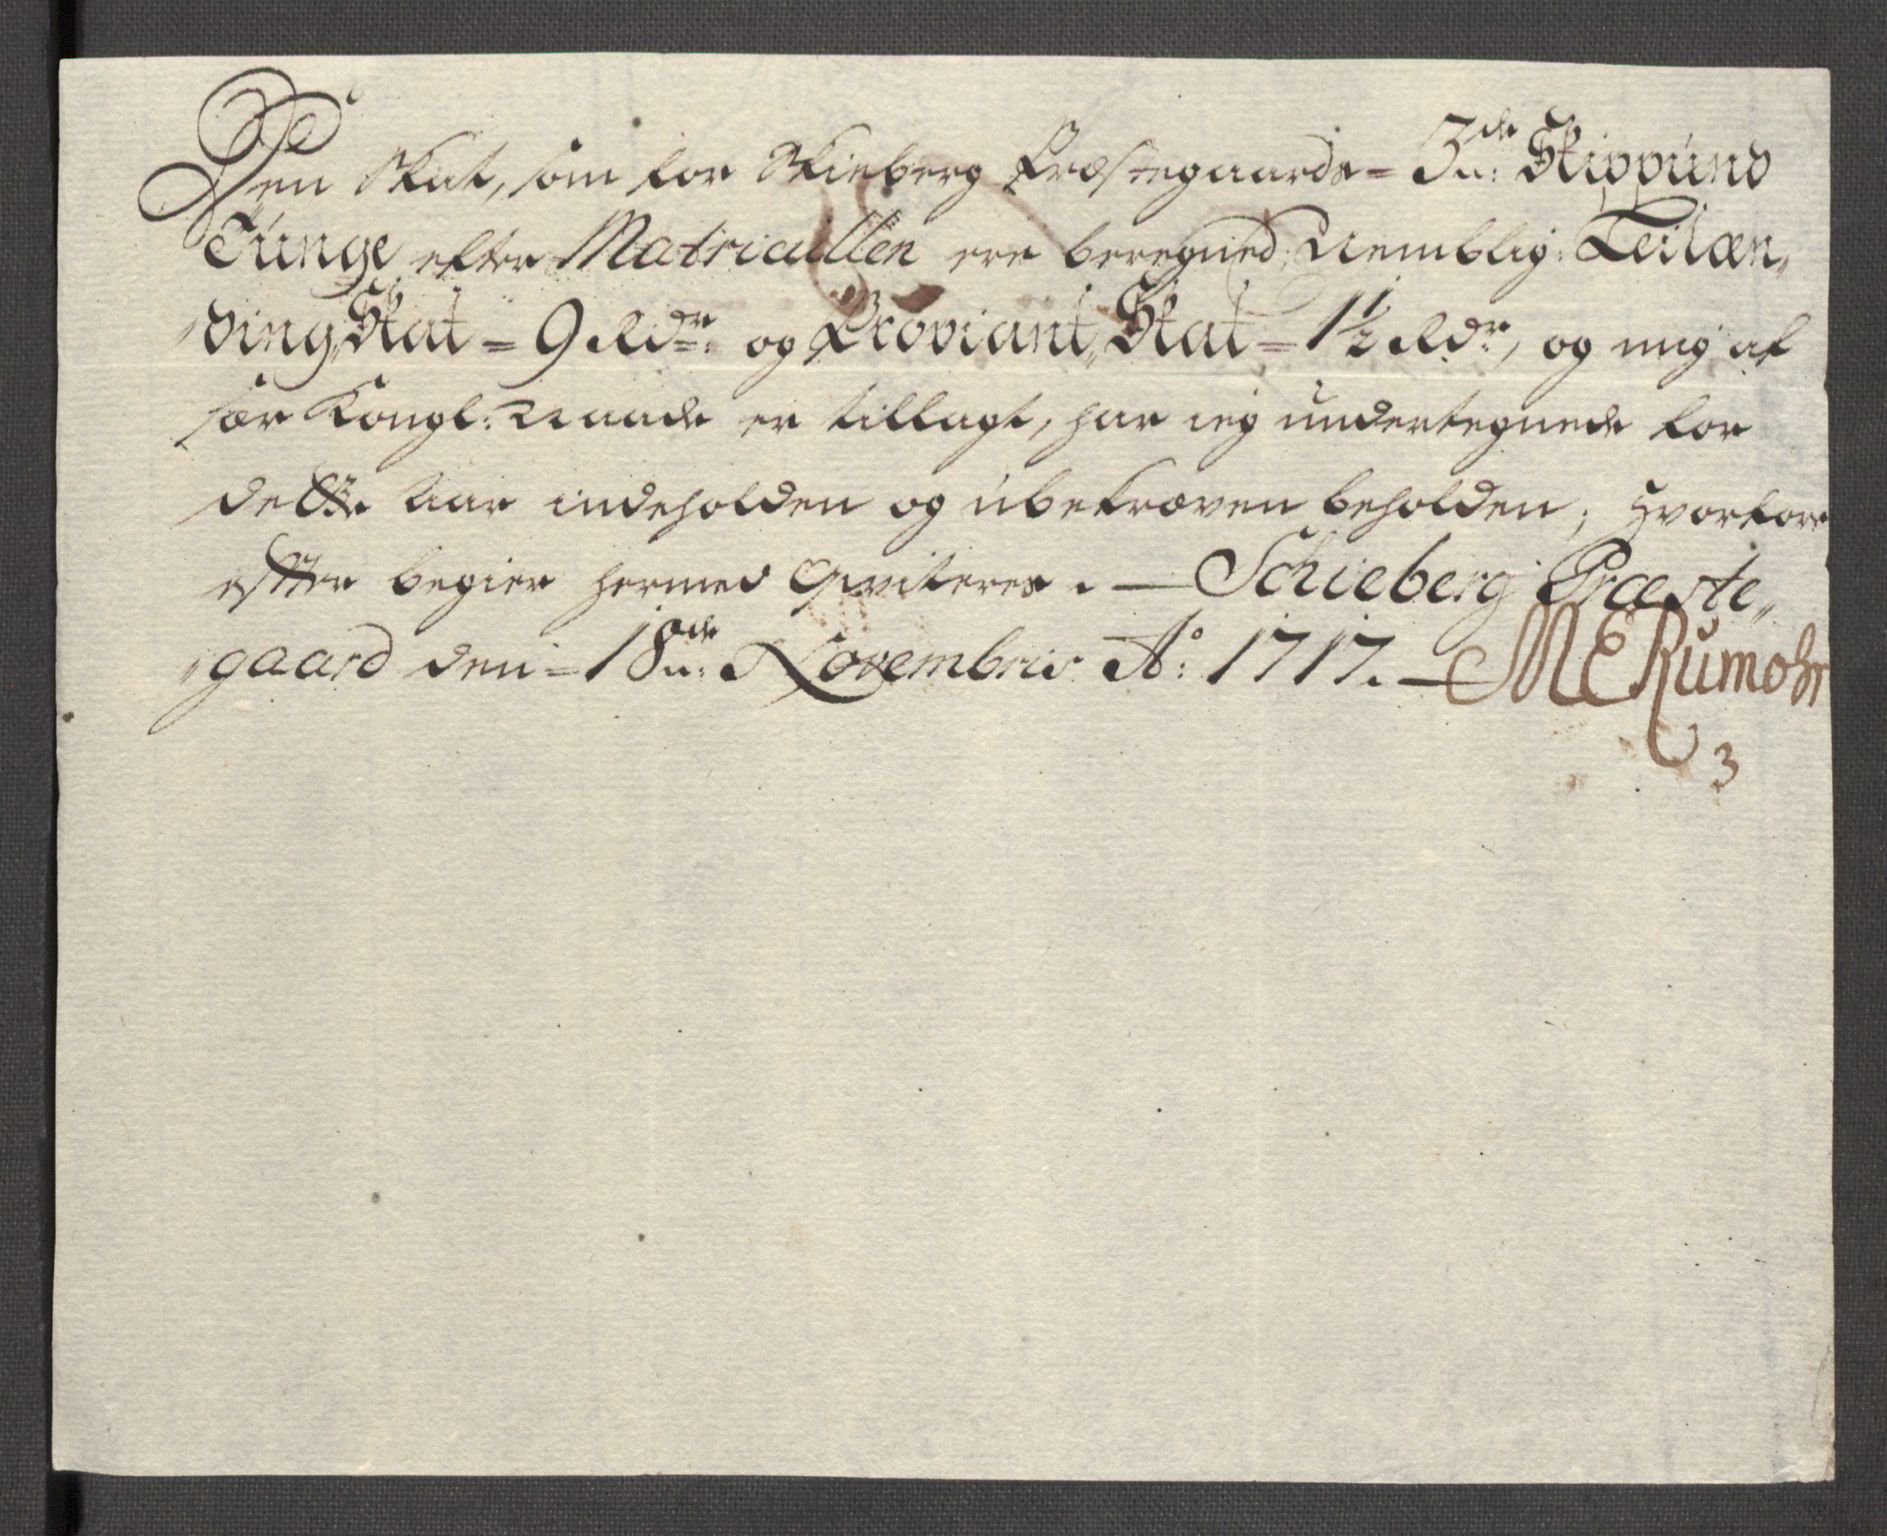 Den Skat, som for Skieberg Præstegaards = 3de Skippund
Tunge efter Matricullen ere beregned, Nemblig: Leilæn„
„ding„Skat = 9 Rdr: og Proviant„Skat = 1½ Rdr, og mig af
sær Kongl: Naade er tillagt, har ieg undertegnede for
dette Aar indeholden og ubekræven beholden; hvorfore
efter begier hermed Qviteres. — Schieberg Præste„
„gaard den = 18de Novembris Ao: 1717. — MERumohr
3